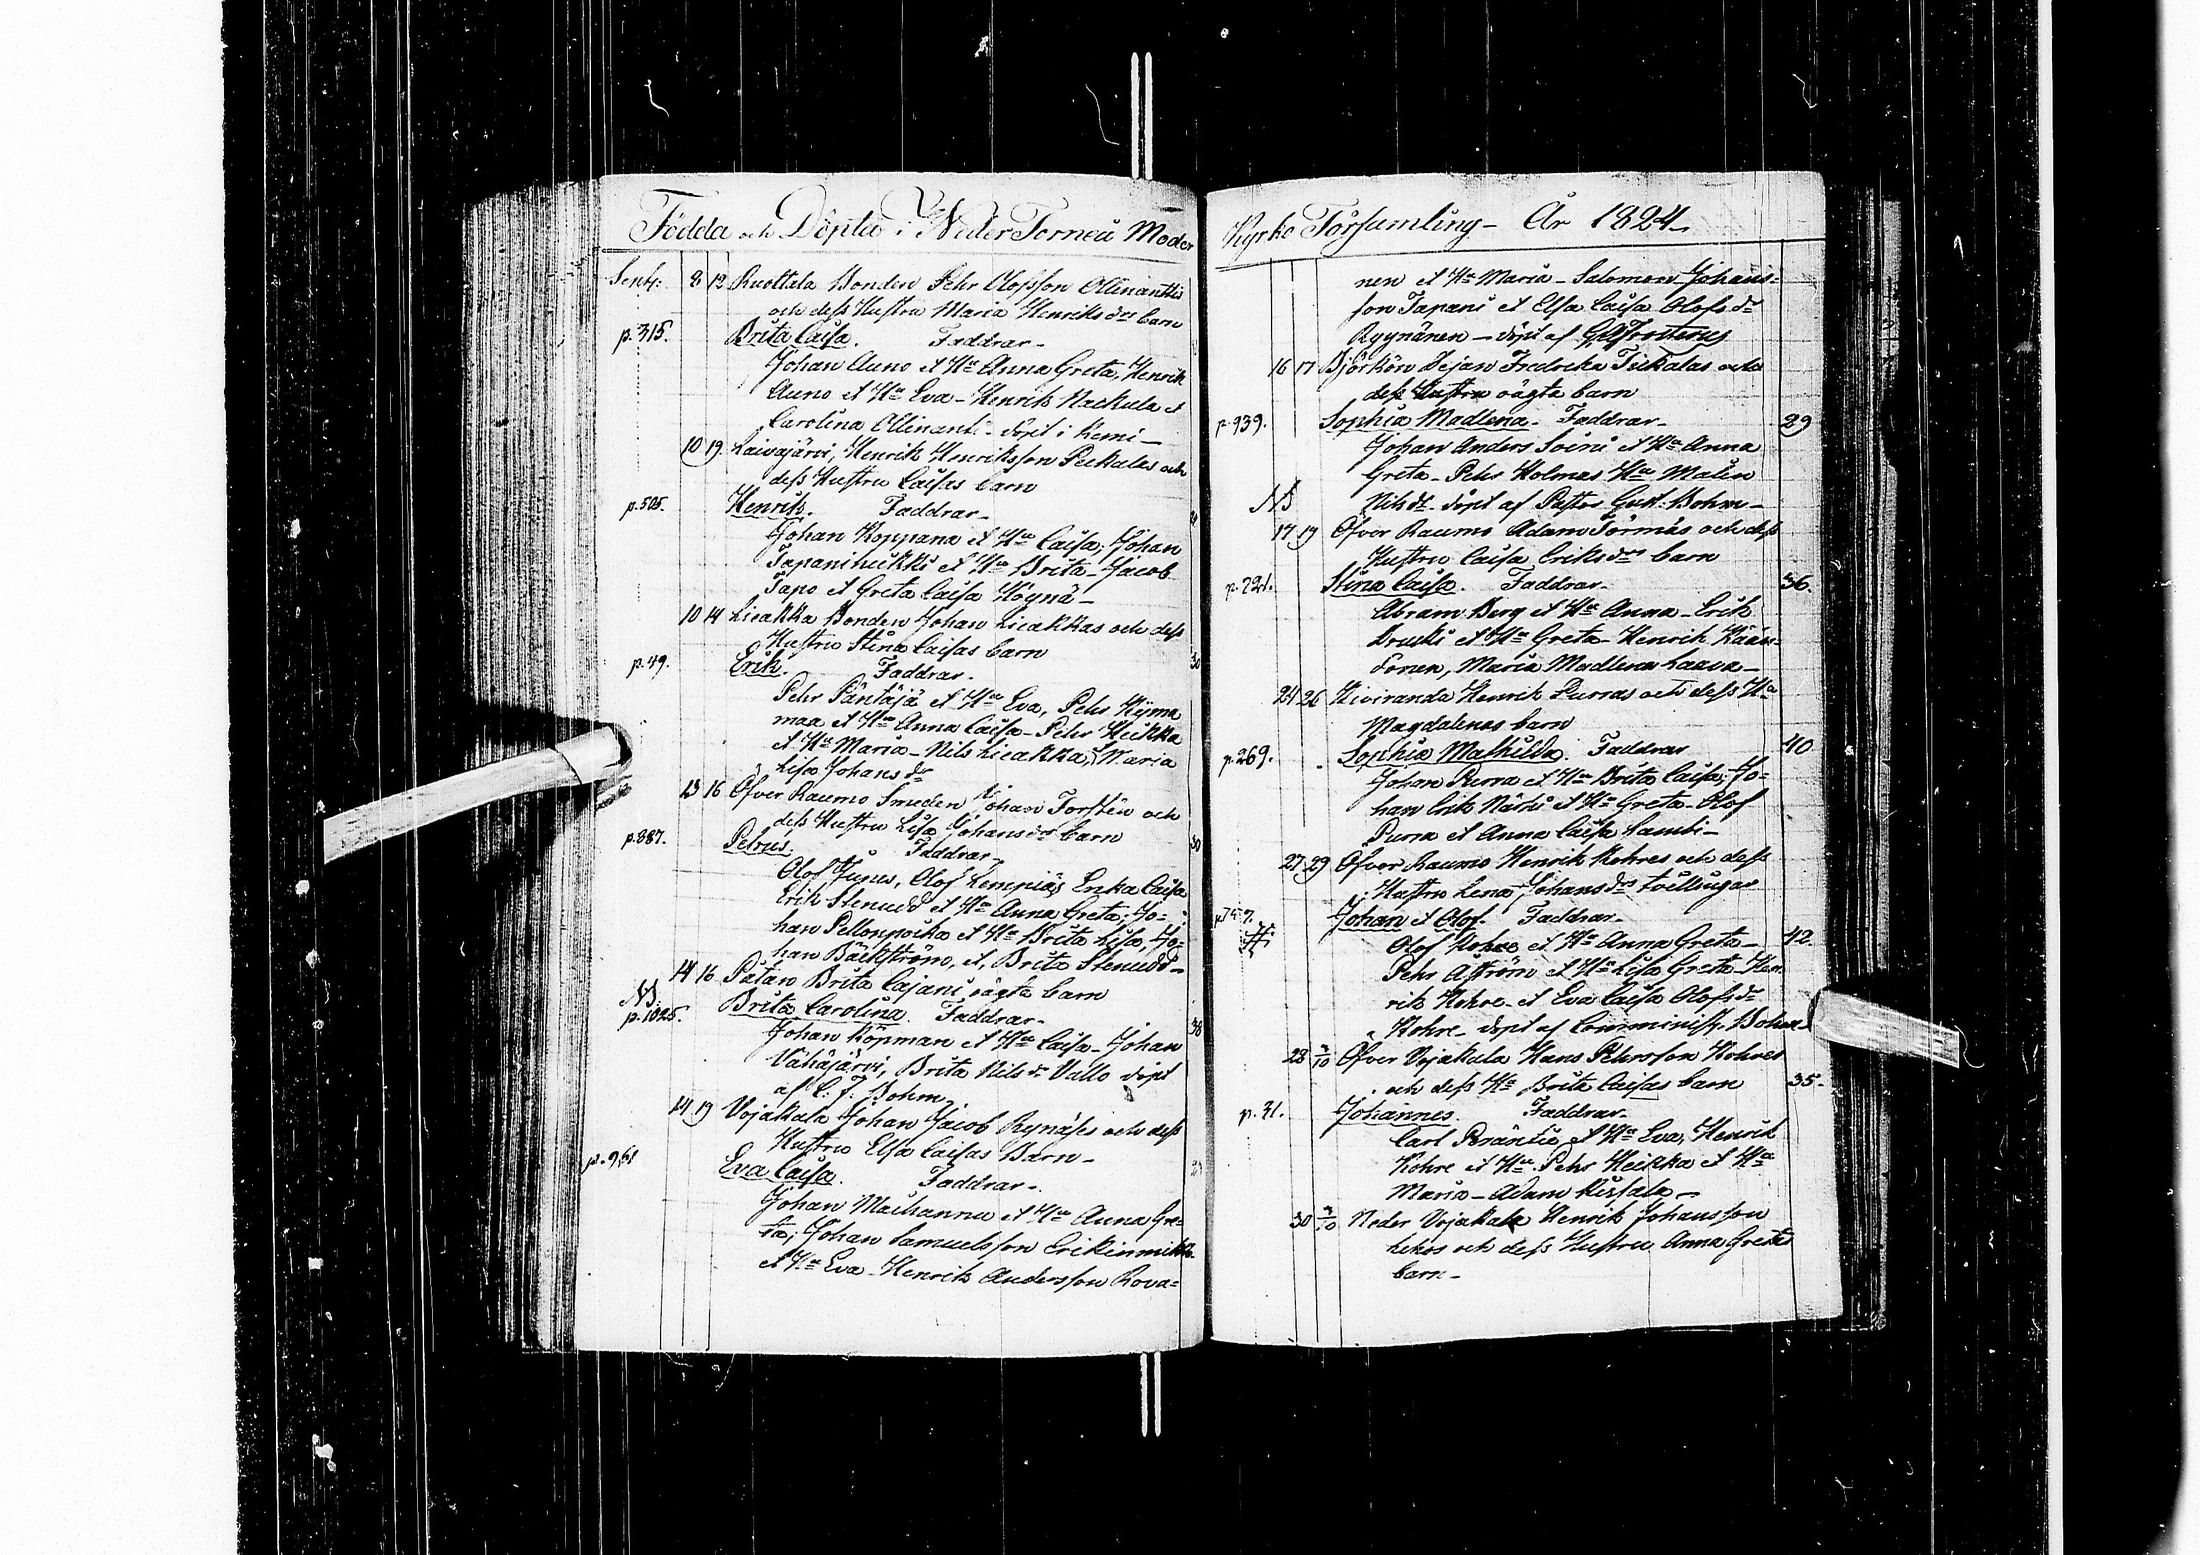 Födda och Döpta i Neder Torneå Moder
Sept: 8 12 Ruottala Bonden Pehr Olofsson Ollinanttis
och dess Hustru Maria Henriksdrs barn
p. 315. Brita Caisa. Faddrar-
Johan Auno et Hu Anna Greta, Henrik
Auno et Hu Eva - Henrik Nackula et
Carolina Ollinanti - döpt i Kemi -
10 19 Laivajärvi, Henrik Henriksson Peckalas och
dess Hustru Caisas barn
p. 505. Henrik. Faddrar -
Johan Koppana et Hu Caisa; Johan
Tapaniheikki et Hu Brita - Jacob
Tapo et Greta Caisa Höynä -
10 14 Lieakka Bonden Johan Lieakkas och dess
Hustru Stina Caisas barn
p. 49. Erik. Faddrar. 30
Pehr Päntäjä et Hu Eva, Pehr Kyma
maa et Hu Anna Caisa - Pehr Heikka
et Hu Maria - Nils Lieakka, Maria
Lisa Johansdr
13 16 Öfver Raumo Smeden Johan Torstén och
dess Hustru Lisa Johansdrs barn
p. 887. Petrus. Faddrar - 30
Olof Junes, Olof Lempiäs Erika Caisa
Erik Stenudd et Hu Anna Greta; Jo=
han Pellonpoika et Hu Brita Lisa, Jo=
han Bäckström, et, Brita Stenudd -
14 16 Pigan Brita Cajani oägta barn
NB. p. 1025. Brita Carolina. Faddrar - 38
Johan Köpman et Hu Caisa - Johan
Vähäjärvi, Brita Nilsdr Vallo döpt
af C. J. Bohm
14 19 Vojakala Johan Jacob Rynäses och dess
Hustru Elsa Caisas Barn -
p. 961 Eva Caisa. Faddrar -
Johan Maihannu et Hu Anna Gre=
ta; Johan Samuelsson Erikinmikko
et Hu Eva - Henrik Andersson Rova=
Kyrko Församling - År 1824 -
nen et Hu Maria - Salomon Johans=
son Tapani et Elsa Caisa Olofsdr
Ryynänen - döpt af
16 17 Björkön Pejan Fredrika Fiskalas och
dess Hustru oägta barn
p. 939. Sophia Madlena - Faddrar - 29
Johan Anders Soini et Hu Anna
Greta - Pehr Holmas Hu Malin
NB Nilsdr - döpt af Pastor Gust: Bohm -
17 19 Öfver Raumo Adam Törmäs och dess
Hustru Caisa Eriksdrs barn
Stina Caisa. Faddrar - 36.
Abram Berg et Hu Anna - Erik
et Hu Greta - Henrik Kään=
Maria Madlena Laava -
24 26 Kiviranda Henrik Purras och dess Hu
Magdalenas barn
p. 269. Sophia Mathilda. Faddrar 40
Johan Purra et Hu Brita Caisa; Jo=
han Erik Närhi et Hu Greta - Olof
Purra et Anna Caisa Lambi -
27 29 Öfver Raumo Henrik Kohres och dess
Hustru Lena Johansdrs tvillingar
Johan et Olof. Faddrar -
Olof Kohre et Hu Anna Greta - 42.
Pehr Åström et Hu Lisa Greta - Hen
rik Kohre - et Eva Caisa Olofsdr
Kohre - döpt af Comminist. Bohm -
28 3/10 Öfver Vojakala Hans Pehrsson Kohres
och dess Hu Brita Caisas barn 35 -
p. 31. Johannes. Faddrar -
Carl Peräntie et Hu Eva, Henrik
Kohre et Hu. Pehr Heikka et Hu
Maria - Adam Ristala -
30 3/10 Neder Vojakala Henrik Johansson
Lehos och dess Hustru Anna Gretas
barn -